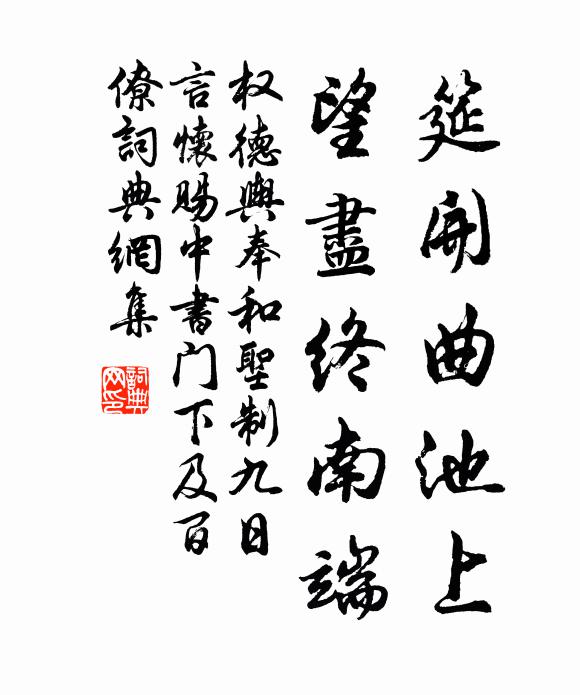 筵開曲池上
望盡終南端
权德輿奉和聖制九日
言懷賜中書门下及百
僚詞典網集
詞典网印